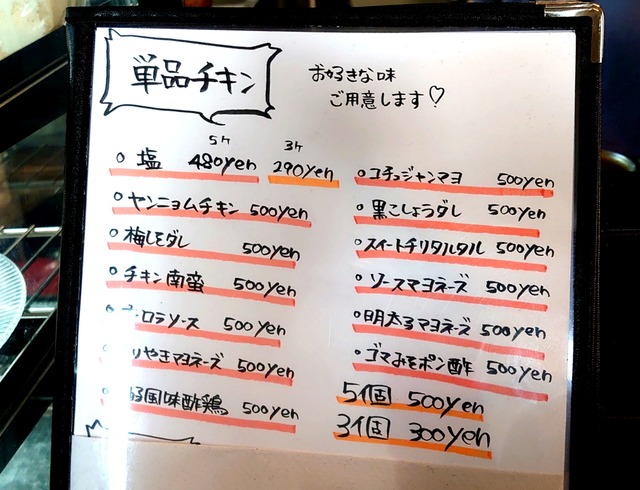 単品チキン
お好きな味
ご用意します♡
5ヶ 3ヶ
○ 塩 480yen 290yen
○ ヤンニョムチキン 500yen
○ 梅しそダレ 500yen
○ チキン南蛮 500yen
ーロラソース 500yen
りやきマヨネーズ 500yen
国味酢鶏 500yen
○ コチュジャンマヨ 500yen
○ 黒こしょうダレ 500yen
○ スイートチリタルタル 500yen
○ ソースマヨネーズ 500yen
○ 明太子マヨネーズ 500yen
○ ゴマみそポン酢 500yen
5個 500yen
3個 300yen